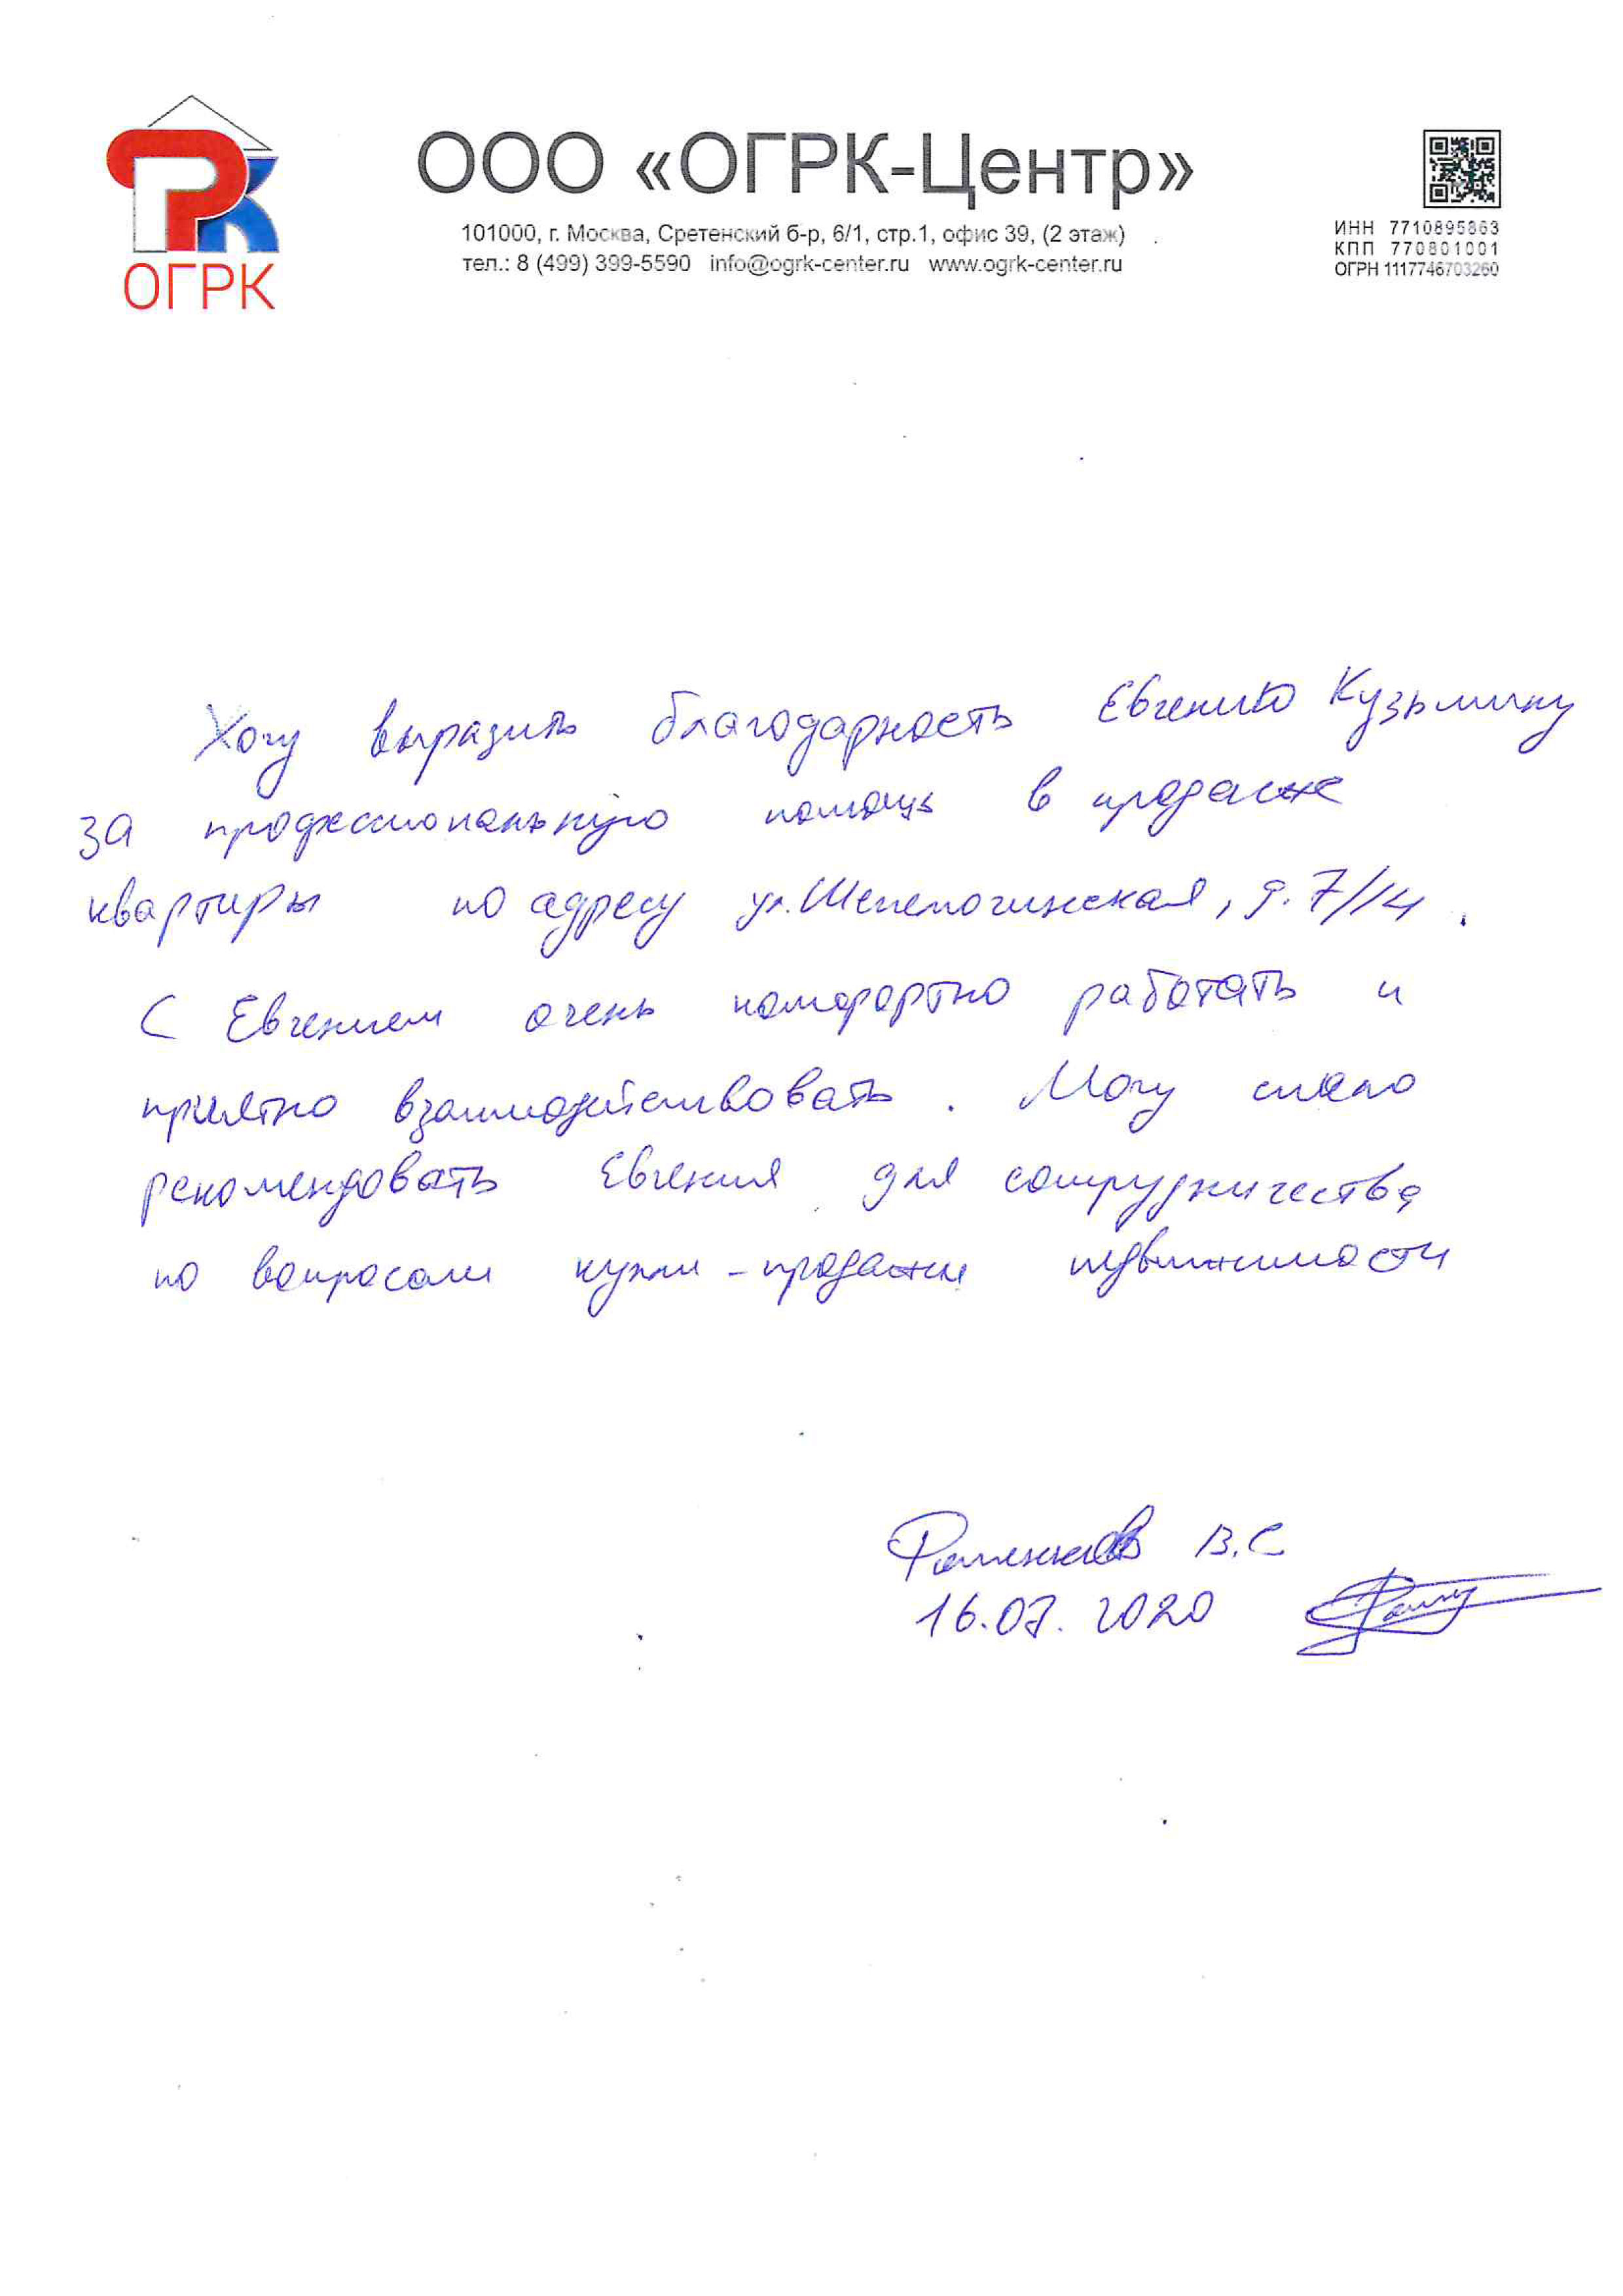 ОГРК
ООО «ОГРК-Центр»
101000, г. Москва, Сретенский б-р, 6/1, стр.1, офис 39, (2 этаж)
тел.: 8 (499) 399-5590 info@ogrk-center.ru www.ogrk-center.ru
ИНН 7710895863
КПП 770801001
ОГРН 1117746703260
Хочу выразить благодарность Евгению Кузьмину
за профессиональную помощь в продаже
квартиры по адресу ул. Шепелюгинская, д. 7/14.
С Евгением очень комфортно работать и
приятно взаимодействовать. Могу смело
рекомендовать Евгения для сотрудничества
по вопросам купли-продажи недвижимости
В.С
16.07.2020